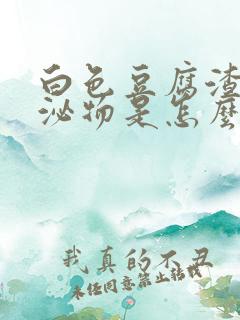 白色豆腐渣
泌物是怎麽
我真的不丑
未经同意禁止转载